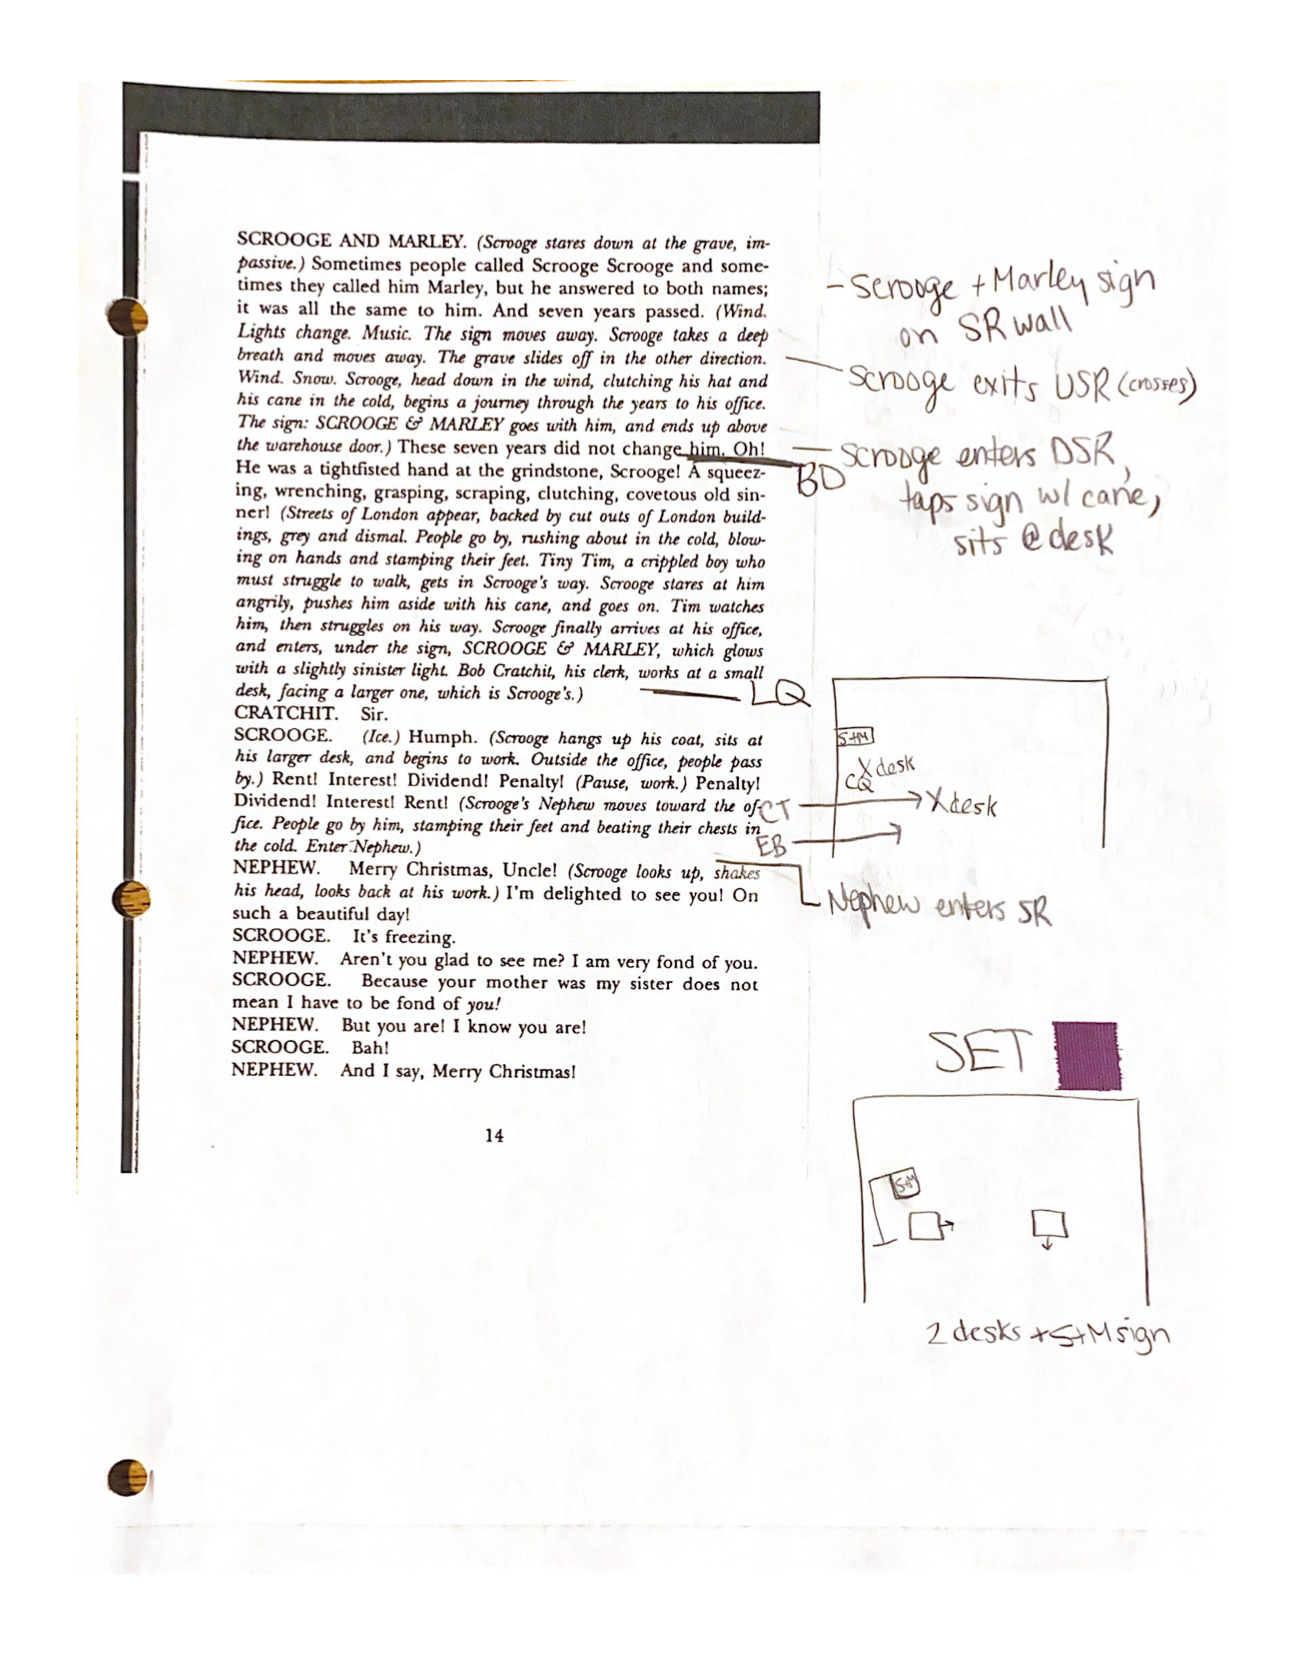 SCROOGE AND MARLEY. (Scrooge stares down at the grave, im-
passive.) Sometimes people called Scrooge Scrooge and some-
times they called him Marley, but he answered to both names;
it was all the same to him. And seven years passed. (Wind.
Lights change. Music. The sign moves away. Scrooge takes a deep
breath and moves away. The grave slides off in the other direction.
Wind. Snow. Scrooge, head down in the wind, clutching his hat and
his cane in the cold, begins a journey through the years to his office.
The sign: SCROOGE & MARLEY goes with him, and ends up above
the warehouse door.) These seven years did not change him. Oh!
He was a tightfisted hand at the grindstone, Scrooge! A squeez-
ing, wrenching, grasping, scraping, clutching, covetous old sin-
ner! (Streets of London appear, backed by cut outs of London build-
ings, grey and dismal. People go by, rushing about in the cold, blow-
ing on hands and stamping their feet. Tiny Tim, a crippled boy who
must struggle to walk, gets in Scrooge's way. Scrooge stares at him
angrily, pushes him aside with his cane, and goes on. Tim watches
him, then struggles on his way. Scrooge finally arrives at his office,
and enters, under the sign, SCROOGE & MARLEY, which glows
with a slightly sinister light. Bob Cratchit, his clerk, works at a small
desk, facing a larger one, which is Scrooge's.)
CRATCHIT. Sir.
SCROOGE. (Ice.) Humph. (Scrooge hangs up his coat, sits at
his larger desk, and begins to work. Outside the office, people pass
by.) Rent! Interest! Dividend! Penalty! (Pause, work.) Penalty!
Dividend! Interest! Rent! (Scrooge's Nephew moves toward the of-
fice. People go by him, stamping their feet and beating their chests in
the cold. Enter Nephew.)
NEPHEW. Merry Christmas, Uncle! (Scrooge looks up, shakes
his head, looks back at his work.) I'm delighted to see you! On
such a beautiful day!
SCROOGE. It's freezing.
NEPHEW. Aren't you glad to see me? I am very fond of you.
SCROOGE. Because your mother was my sister does not
mean I have to be fond of you!
NEPHEW. But you are! I know you are!
SCROOGE. Bah!
NEPHEW. And I say, Merry Christmas!
14
- Scrooge + Marley sign
on SR wall
Scrooge exits USR (crosses)
Scrooge enters DSR,
BD
taps sign w/ cane,
sits @ desk
LQ
S+M
X desk
CQ
CT
X desk
EB
Nephew enters SR
SET
S+M
2 desks + S+M sign